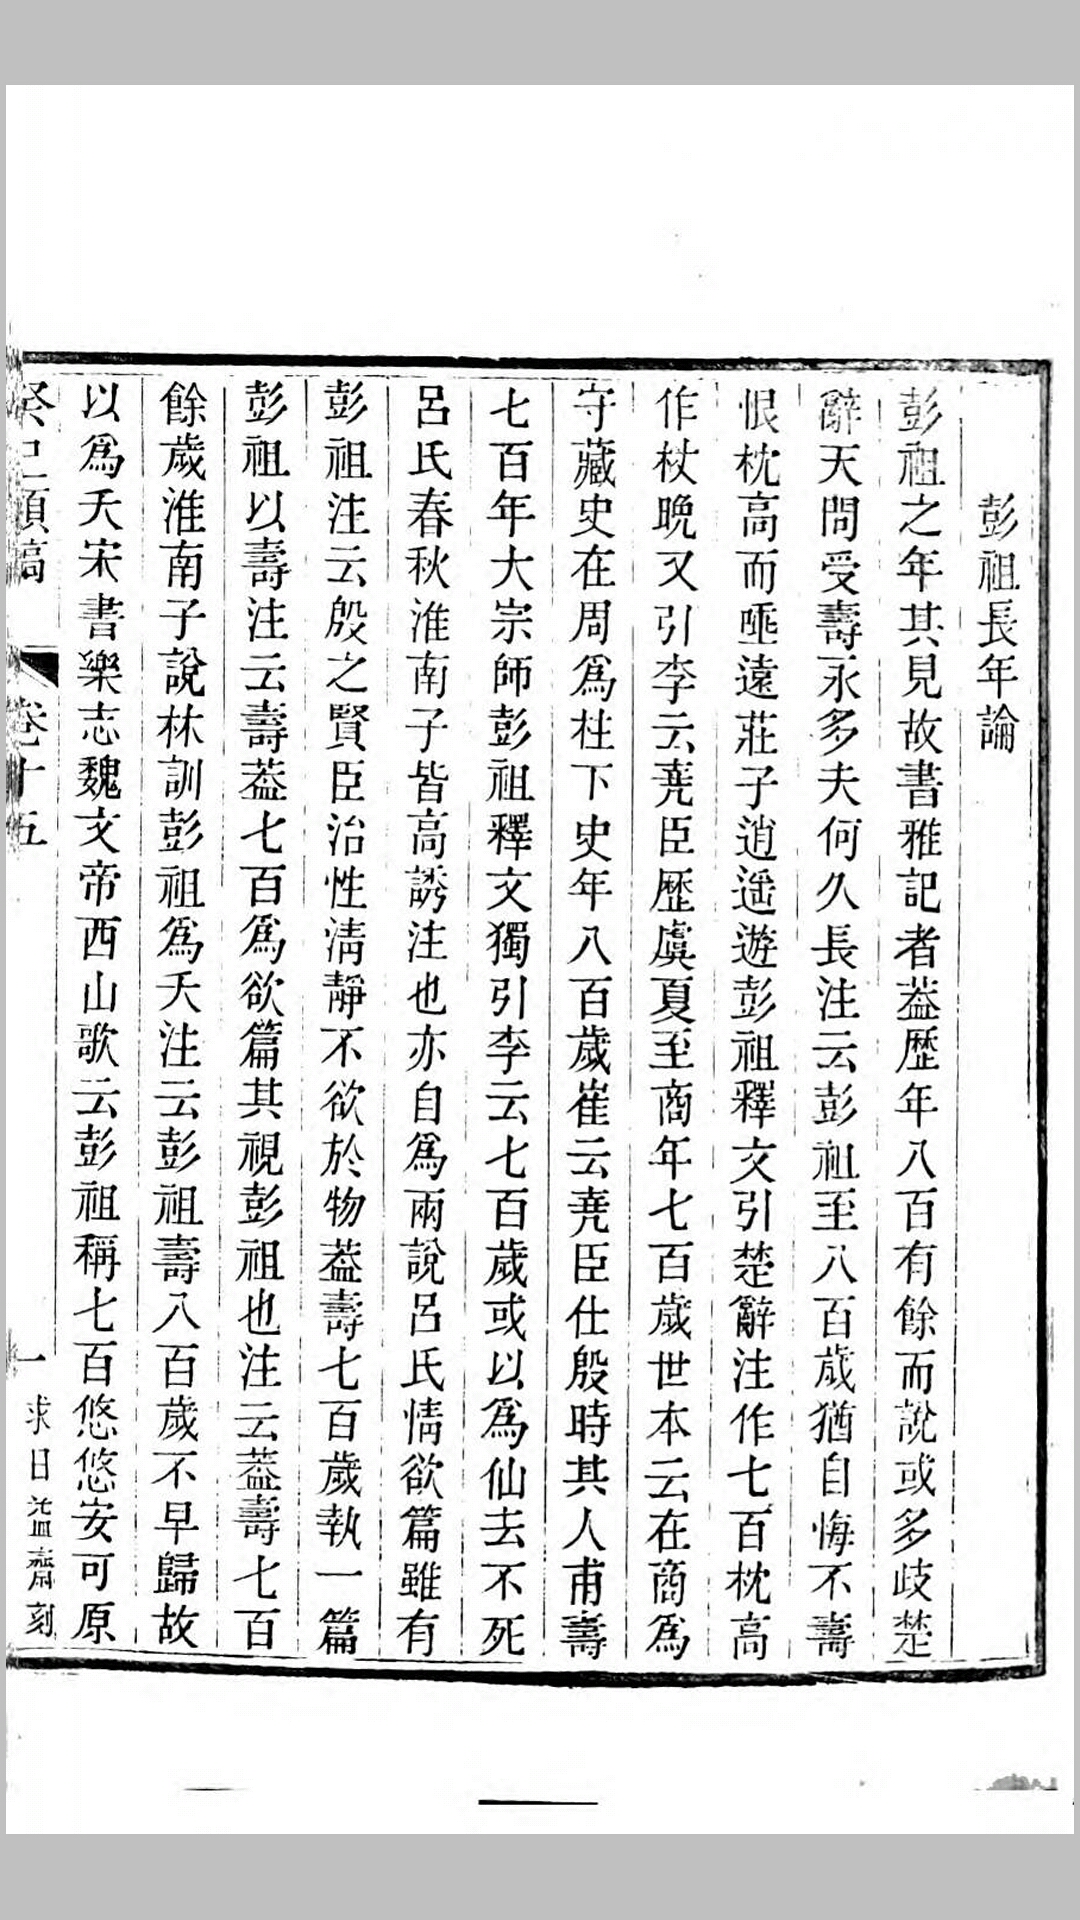 彭祖長年論
彭祖之年其見故書雅記者葢歷年八百有餘而說或多歧楚
辭天問受壽永多夫何久長注云彭祖至八百歲猶自悔不壽
恨枕高而唾遠莊子逍遙遊彭祖釋文引楚辭注作七百枕高
作杖晚又引李云堯臣歷虞夏至商年七百歲世本云在商爲
守藏史在周爲柱下史年八百歲崔云堯臣仕殷時其人甫壽
七百年大宗師彭祖釋文獨引李云七百歲或以爲仙去不死
呂氏春秋淮南子皆高誘注也亦自爲兩說呂氏情欲篇雖有
彭祖注云殷之賢臣治性清靜不欲於物葢壽七百歲執一篇
彭祖以壽注云壽葢七百爲欲篇其視彭祖也注云葢壽七百
餘歲淮南子說林訓彭祖爲夭注云彭祖壽八百歲不早歸故
以爲夭宋書樂志魏文帝西山歌云彭祖稱七百悠悠安可原
癸巳類稿 卷十五 一 求日益齋刻